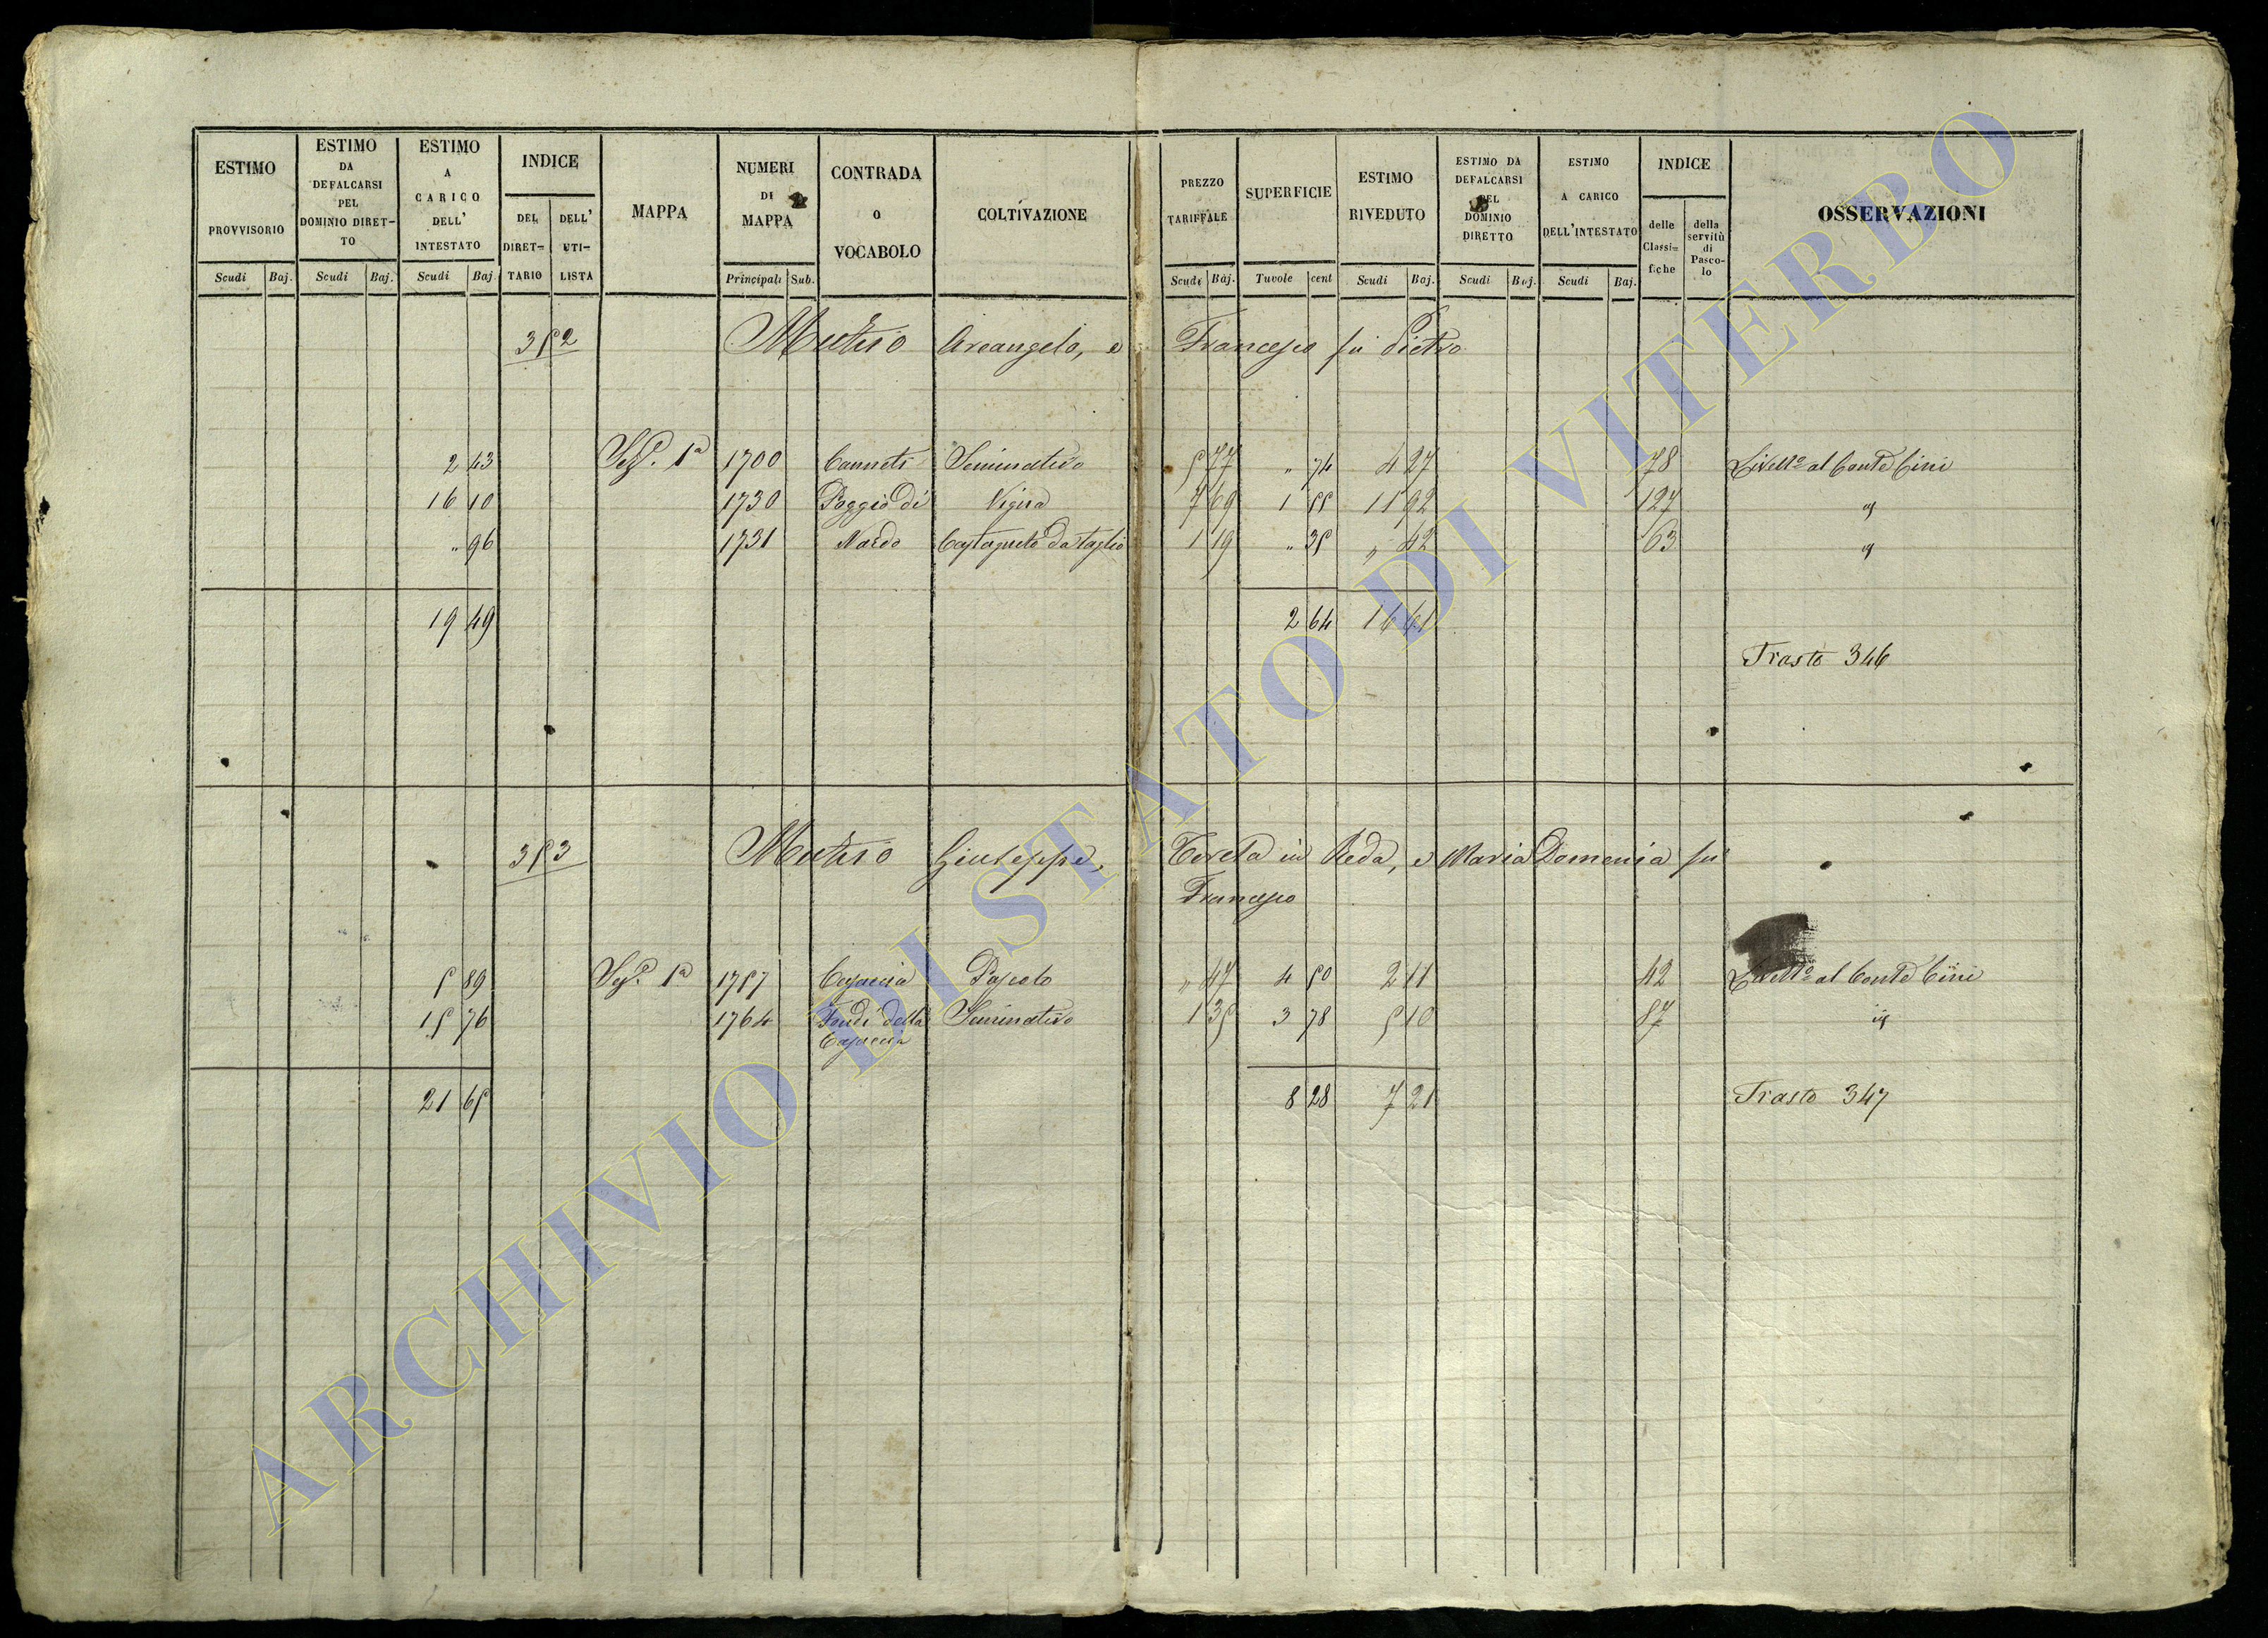 ESTIMO PROVVISORIO
Scudi Baj.
ESTIMO DA DEFALCARSI PEL DOMINIO DIRET-TO
Scudi Baj.
ESTIMO A CARICO DELL' INTESTATO
Scudi Baj.
INDICE
DEL DIRET-TARIO
DELL' UTI-LISTA
MAPPA
NUMERI DI MAPPA
Principali Sub.
CONTRADA O VOCABOLO
COLTIVAZIONE
PREZZO TARIFFALE
Scudi Baj.
SUPERFICIE
Tavole cent
ESTIMO RIVEDUTO
Scudi Baj.
ESTIMO DA DEFALCARSI PEL DOMINIO DIRETTO
Scudi Baj.
ESTIMO A CARICO DELL'INTESTATO
Scudi Baj.
INDICE
delle Classi=fiche
della servitù di Pasco-lo
OSSERVAZIONI
352 Arcangelo, e Francesco fu Pietro
2 43 Sez. 1a 1700 Canneti Seminativo 5 77 " 74 4 27 78 Livello al Conte Cini
16 10 1730 Poggio di Vigna 7 69 1 55 11 92 127
" 96 1731 Nardo Castagneto da taglio 1 19 " 35 " 42 63
19 49 2 64 16 61
Trasto 346
353 Giuseppe, in Reda, e Maria Domenica fu
Francesco
5 89 Sez. 1a 1757 Pascolo " 47 4 50 2 11 42 Livello al Conte Cini
15 76 1764 Fondi della Seminativo 1 35 3 78 5 10 87
21 65 8 28 7 21 Trasto 347
ARCHIVIO DI STATO DI VITERBO